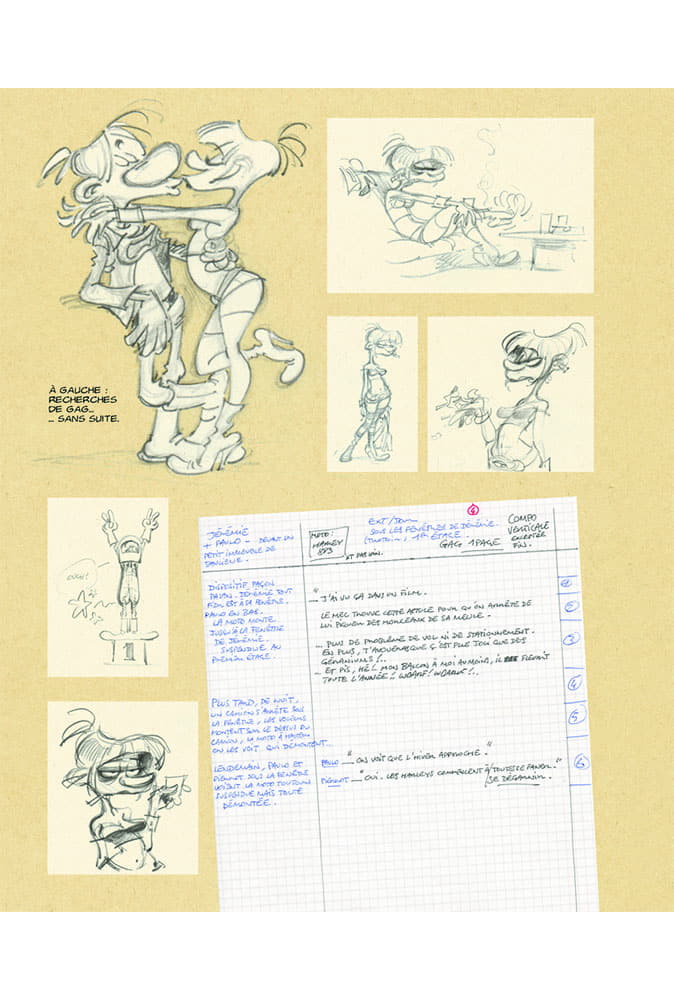 À GAUCHE :
RECHERCHES
DE GAG...
... SANS SUITE.
OUCH!
JÉRÉMIE
+ PAULO - DEVANT UN
PETIT IMMEUBLE DE
BANLIEUE.
MOTO :
HARLEY
883
EXT/JOUR
SOUS LES FENÊTRES DE JÉRÉMIE.
1ER ÉTAGE.
GAG 1 PAGE
COMPO
VERTICALE
FIN.
DISPOSITIF FAÇON
JÉRÉMIE TOUT
FIER EST À LA FENÊTRE.
PAULO EN BAS.
LA MOTO MONTE
JUSQU'À LA FENÊTRE
DE JÉRÉMIE.
SUSPENDUE AU
PREMIER ÉTAGE.
"... J'AI VU ÇA DANS UN FILM.
LE MEC TROUVE CETTE ASTUCE POUR QU'ON ARRÊTE DE
LUI PIQUER DES MORCEAUX DE SA MEULE.
... PLUS DE PROBLÈME DE VOL NI DE STATIONNEMENT.
EN PLUS, T'AVOUERAS QUE Ç'EST PLUS JOLI QUE DES
GÉRANIUMS !..
... ET PIS, HÉ ! MON BALCON À MOI AU MOINS, IL FLEURIT
TOUTE L'ANNÉE !!
PLUS TARD, DE NUIT,
UN CAMION S'ARRÊTE SOUS
LA FENÊTRE, LES VOLEURS
MONTENT SUR LE DESSUS DU
CAMION, LA MOTO À HAUTEUR
ON LES VOIT QUI DÉMONTENT...
LENDEMAIN, PAULO ET
PIERROT SOUS LA FENÊTRE
VOIENT LA MOTO TOUJOURS
SUSPENDUE MAIS TOUTE
DÉMONTÉE.
PAULO "ON VOIT QUE L'HIVER APPROCHE."
PIERROT "OUI. LES HARLEYS COMMENCENT À TOUTES FANER."
/SE DÉGARNIR.
3
4
5
6